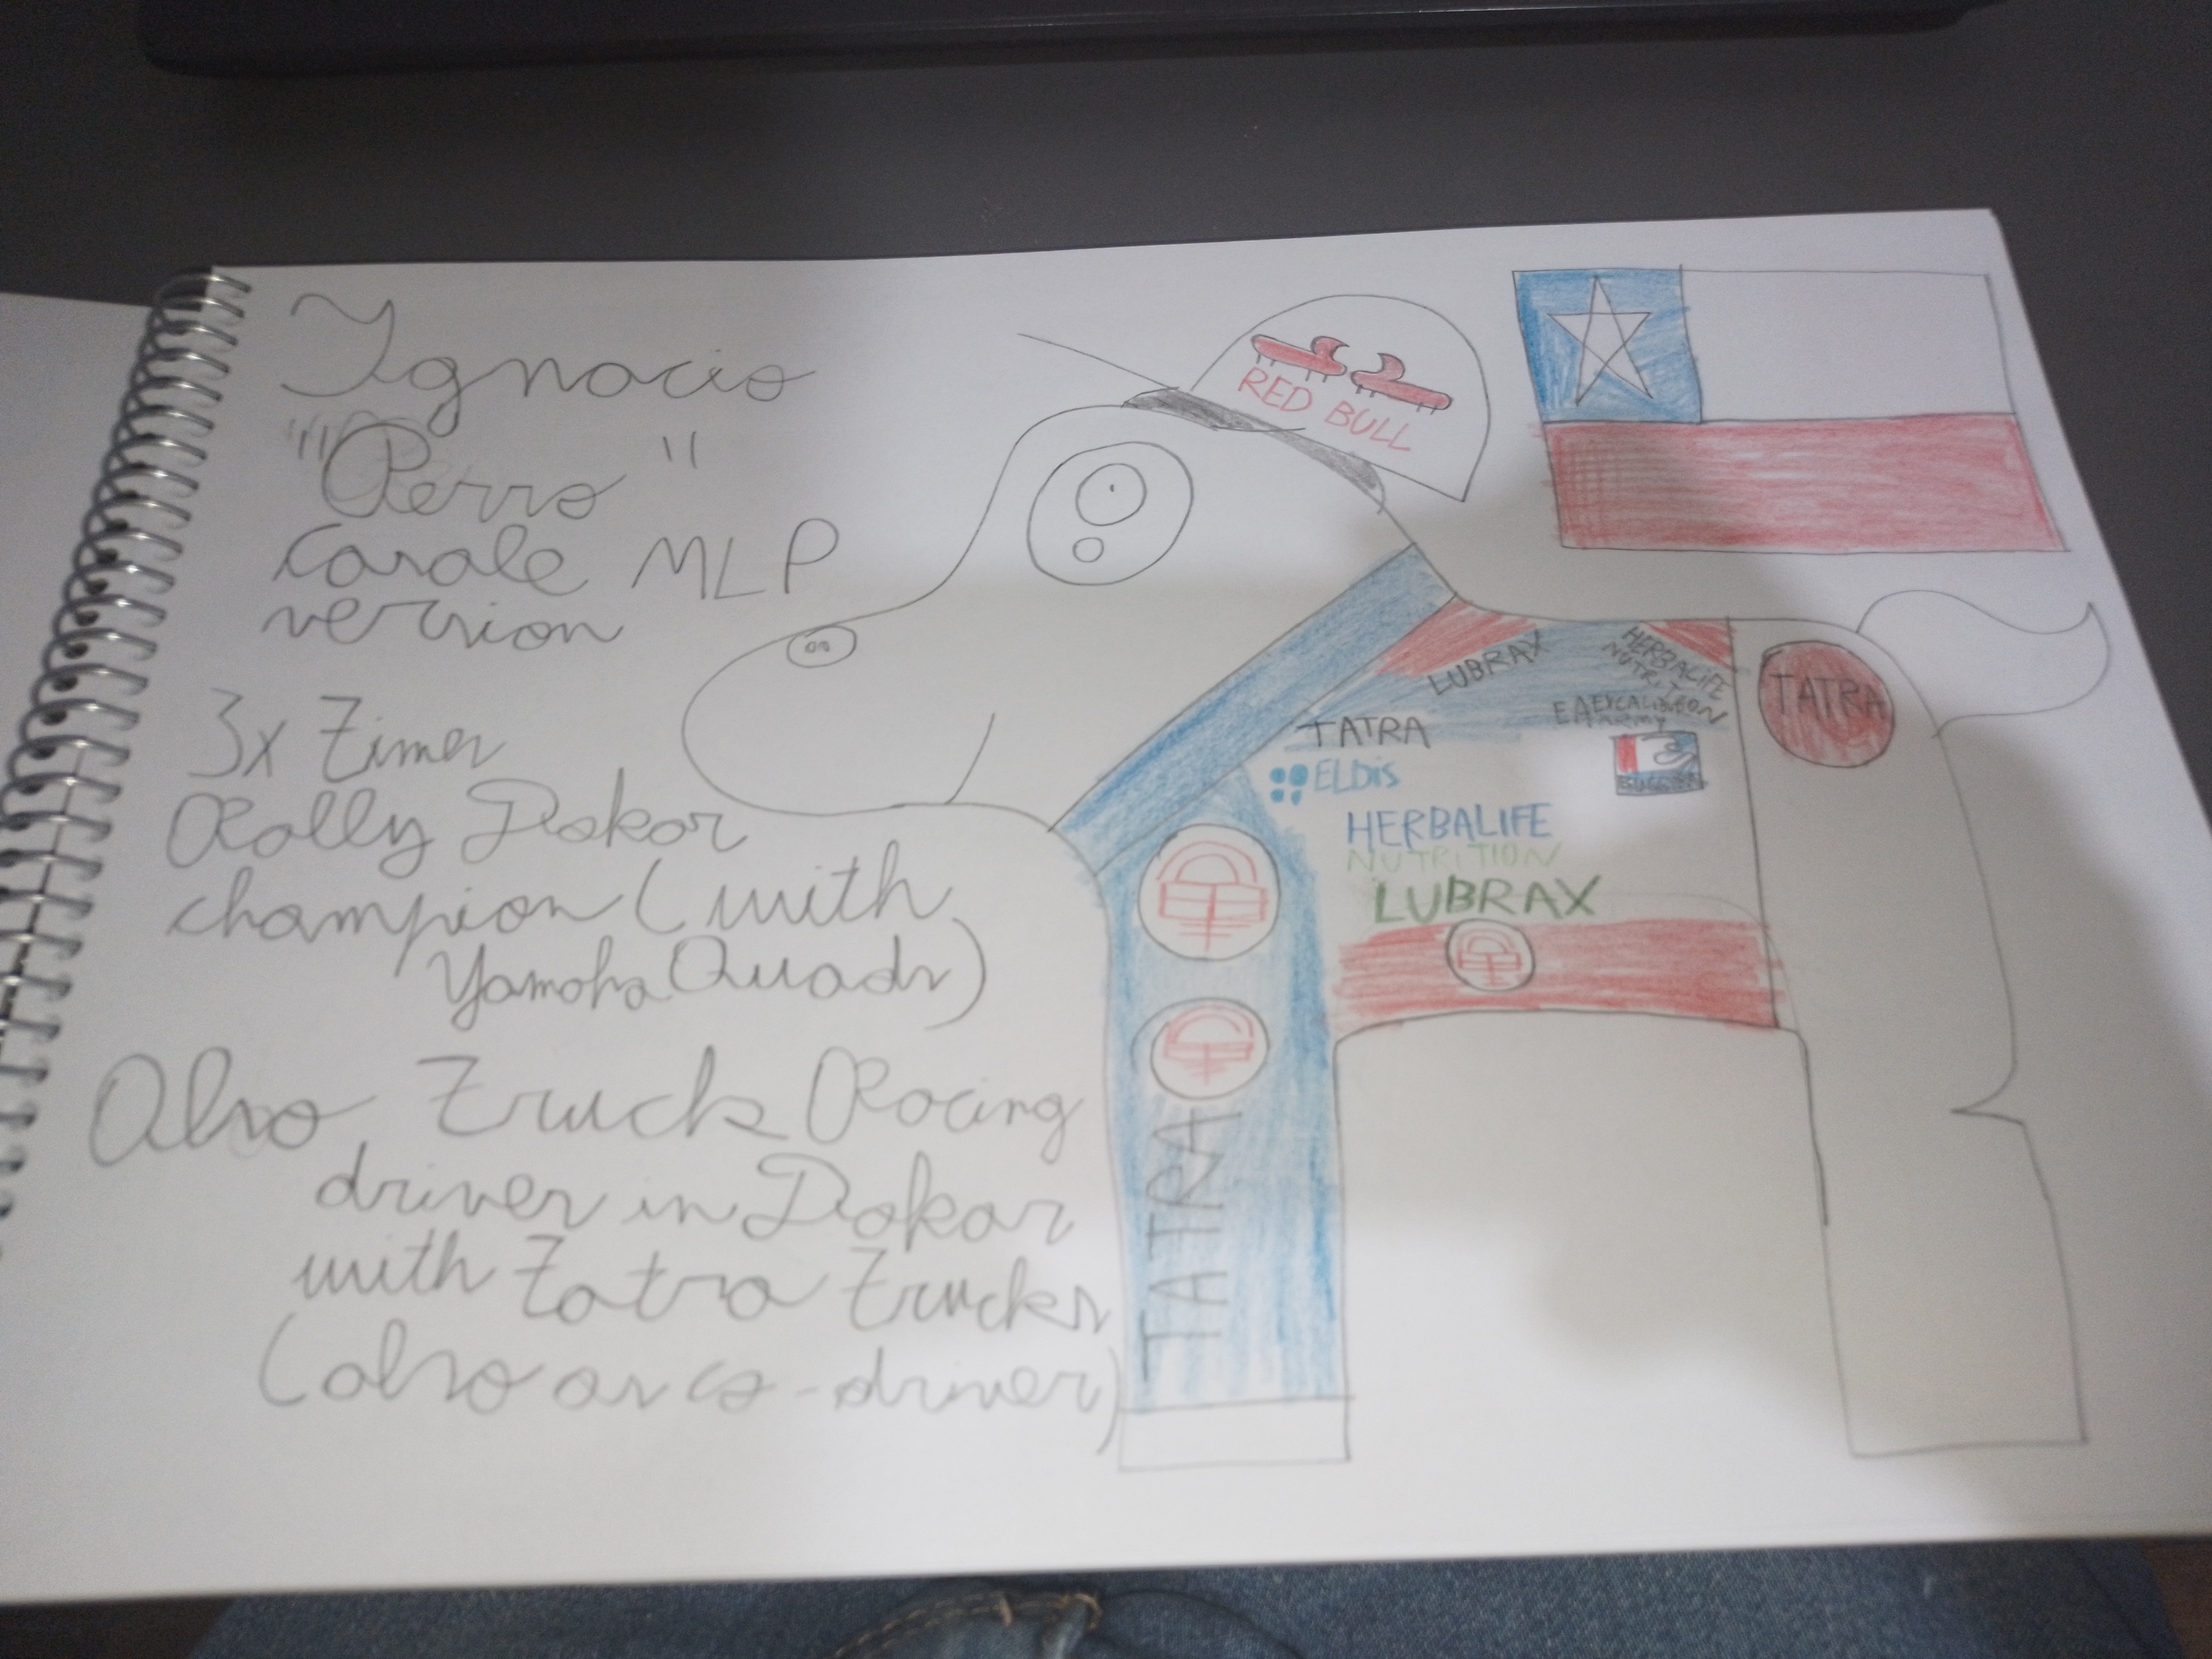 Ignacio
"Perro"
Casale MLP
version
3x Timer
Rally Dakar
champion (with
Yamaha Quads)
Also Truck Racing
driver in Dakar
with Tatra Trucks
(also as co-driver)
RED BULL
LUBRAX
HERBALIFE
NUTRITION
TATRA
EA
ARMY
TATRA
ELDIS
HERBALIFE
NUTRITION
LUBRAX
TATRA